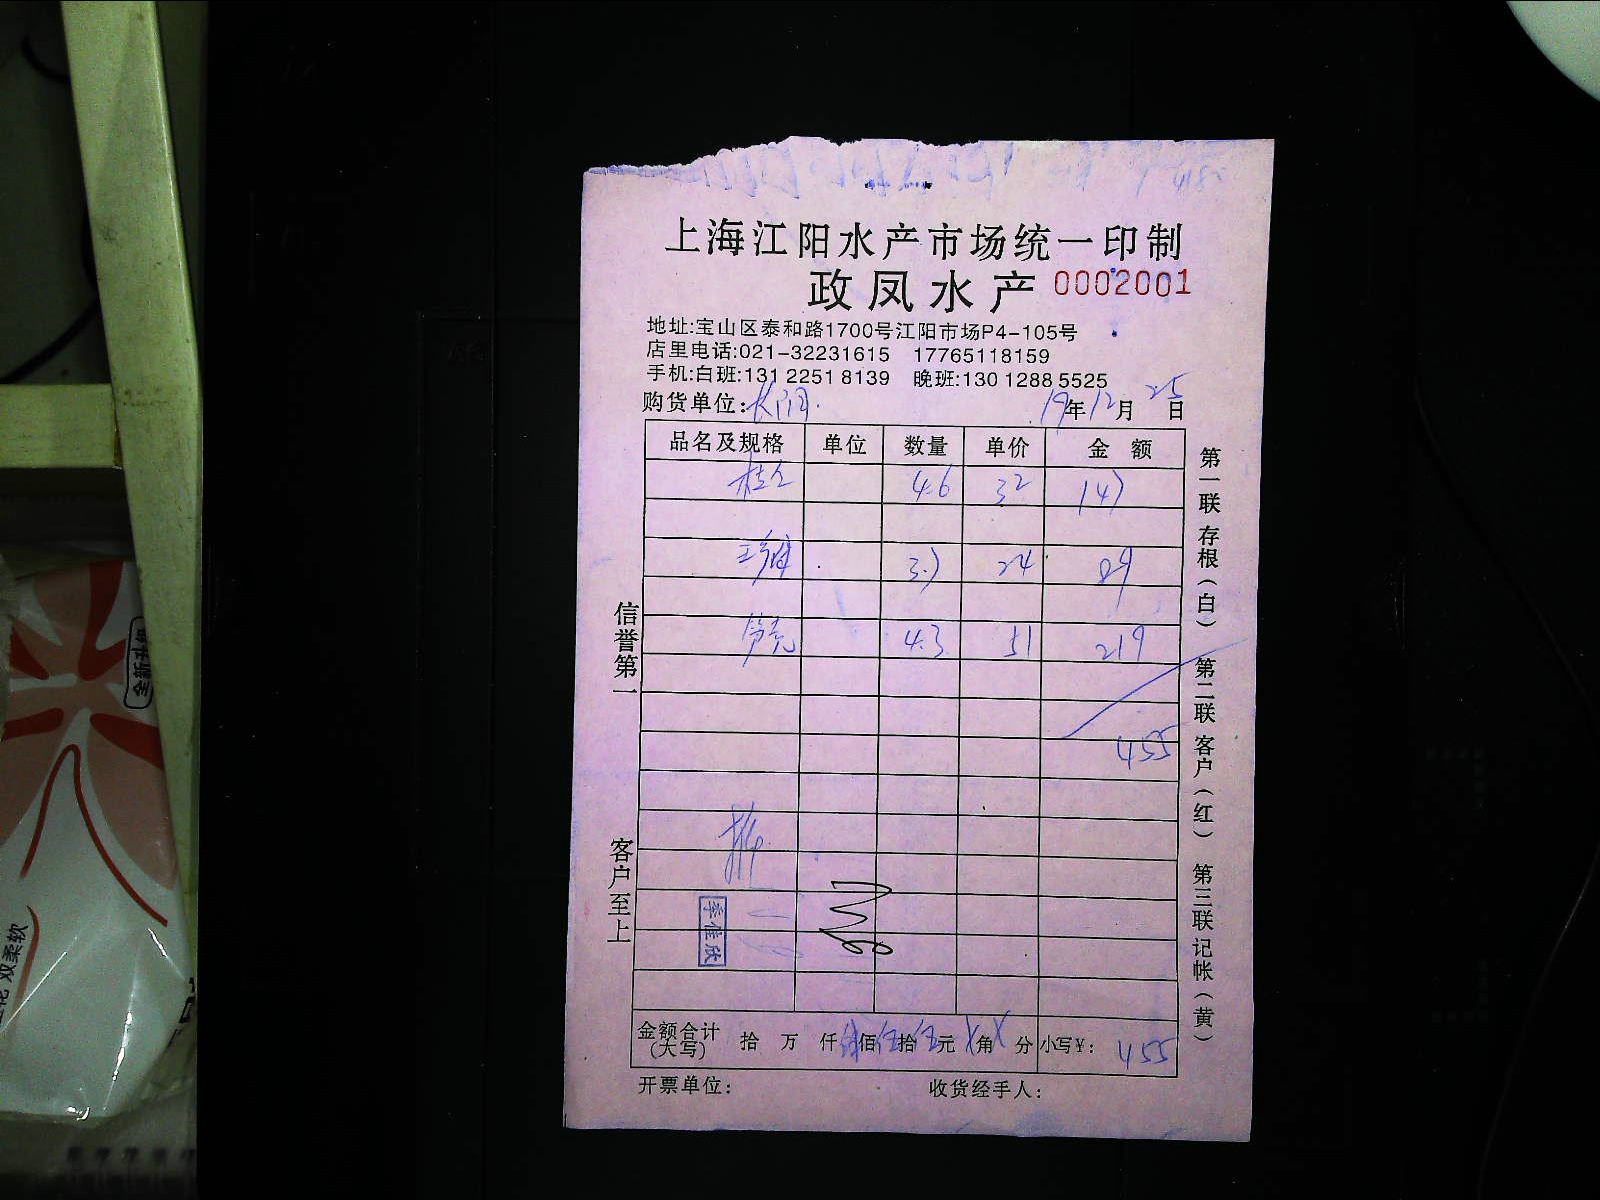 上海江阳水产市场统一印制
政凤水产 0002001
地址:宝山区泰和路1700号江阳市场P4-105号
店里电话:021-32231615 17765118159
手机:白班:131 2251 8139 晚班:130 1288 5525
购货单位: 19年12月25日
品名及规格 单位 数量 单价 金额
4.6 32 147
3.7 24 89
4.3 51 219
455
季佳欣
金额合计(大写) 拾 万 仟 肆佰伍拾伍元 X角 X分 小写¥: 455
开票单位: 收货经手人:
信誉第一
客户至上
第一联 存根(白) 第二联 客户(红) 第三联 记帐(黄)
全新升级
双柔软